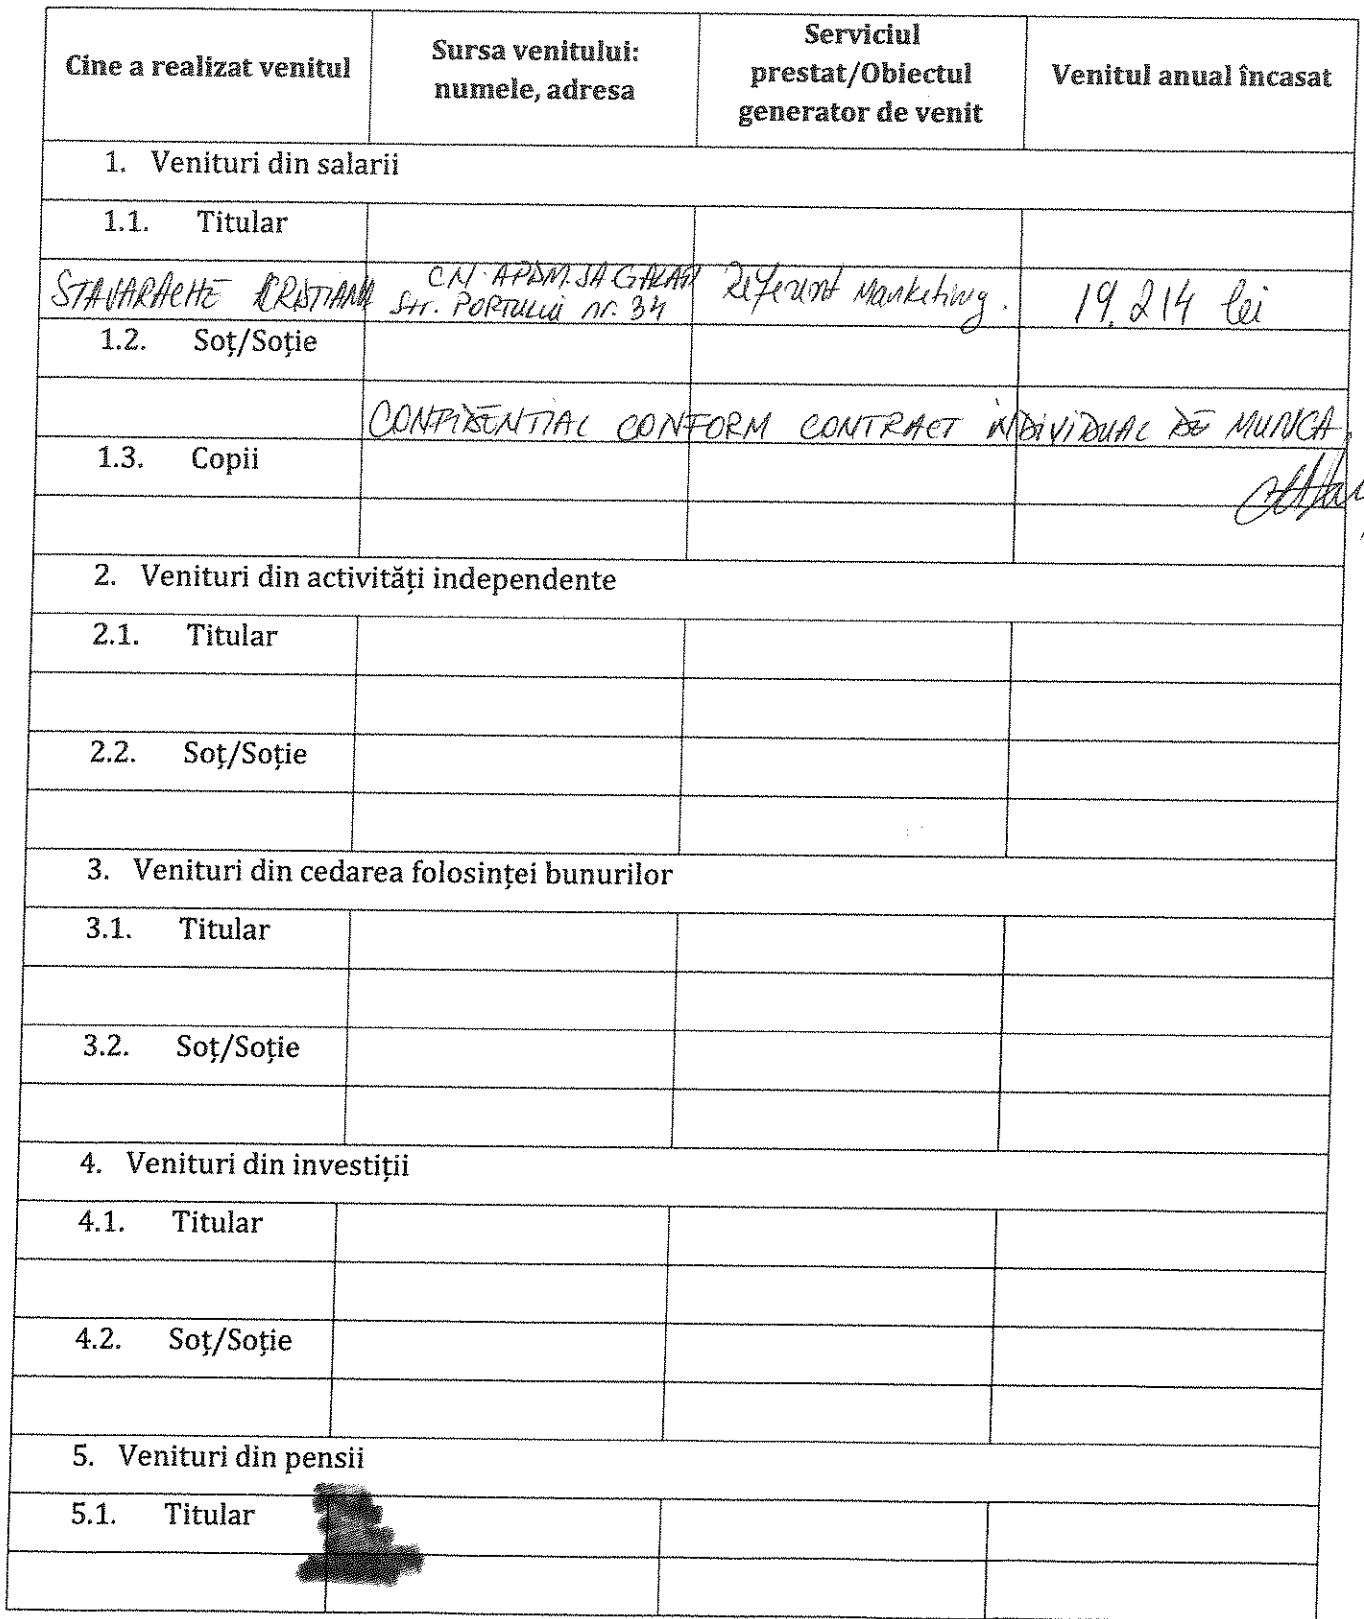 Cine a realizat venitul
Sursa venitului:
numele, adresa
Serviciul
prestat/Obiectul
generator de venit
Venitul anual încasat
1. Venituri din salarii
1.1. Titular
STAVARACHE CRISTIANA
CN. APDM. SA GALATI
Str. PORTULUI nr. 34
Referent Marketing.
19.214 lei
1.2. Soț/Soție
CONFIDENTIAL CONFORM CONTRACT INDIVIDUAL DE MUNCA
1.3. Copii
2. Venituri din activități independente
2.1. Titular
2.2. Soț/Soție
3. Venituri din cedarea folosinței bunurilor
3.1. Titular
3.2. Soț/Soție
4. Venituri din investiții
4.1. Titular
4.2. Soț/Soție
5. Venituri din pensii
5.1. Titular